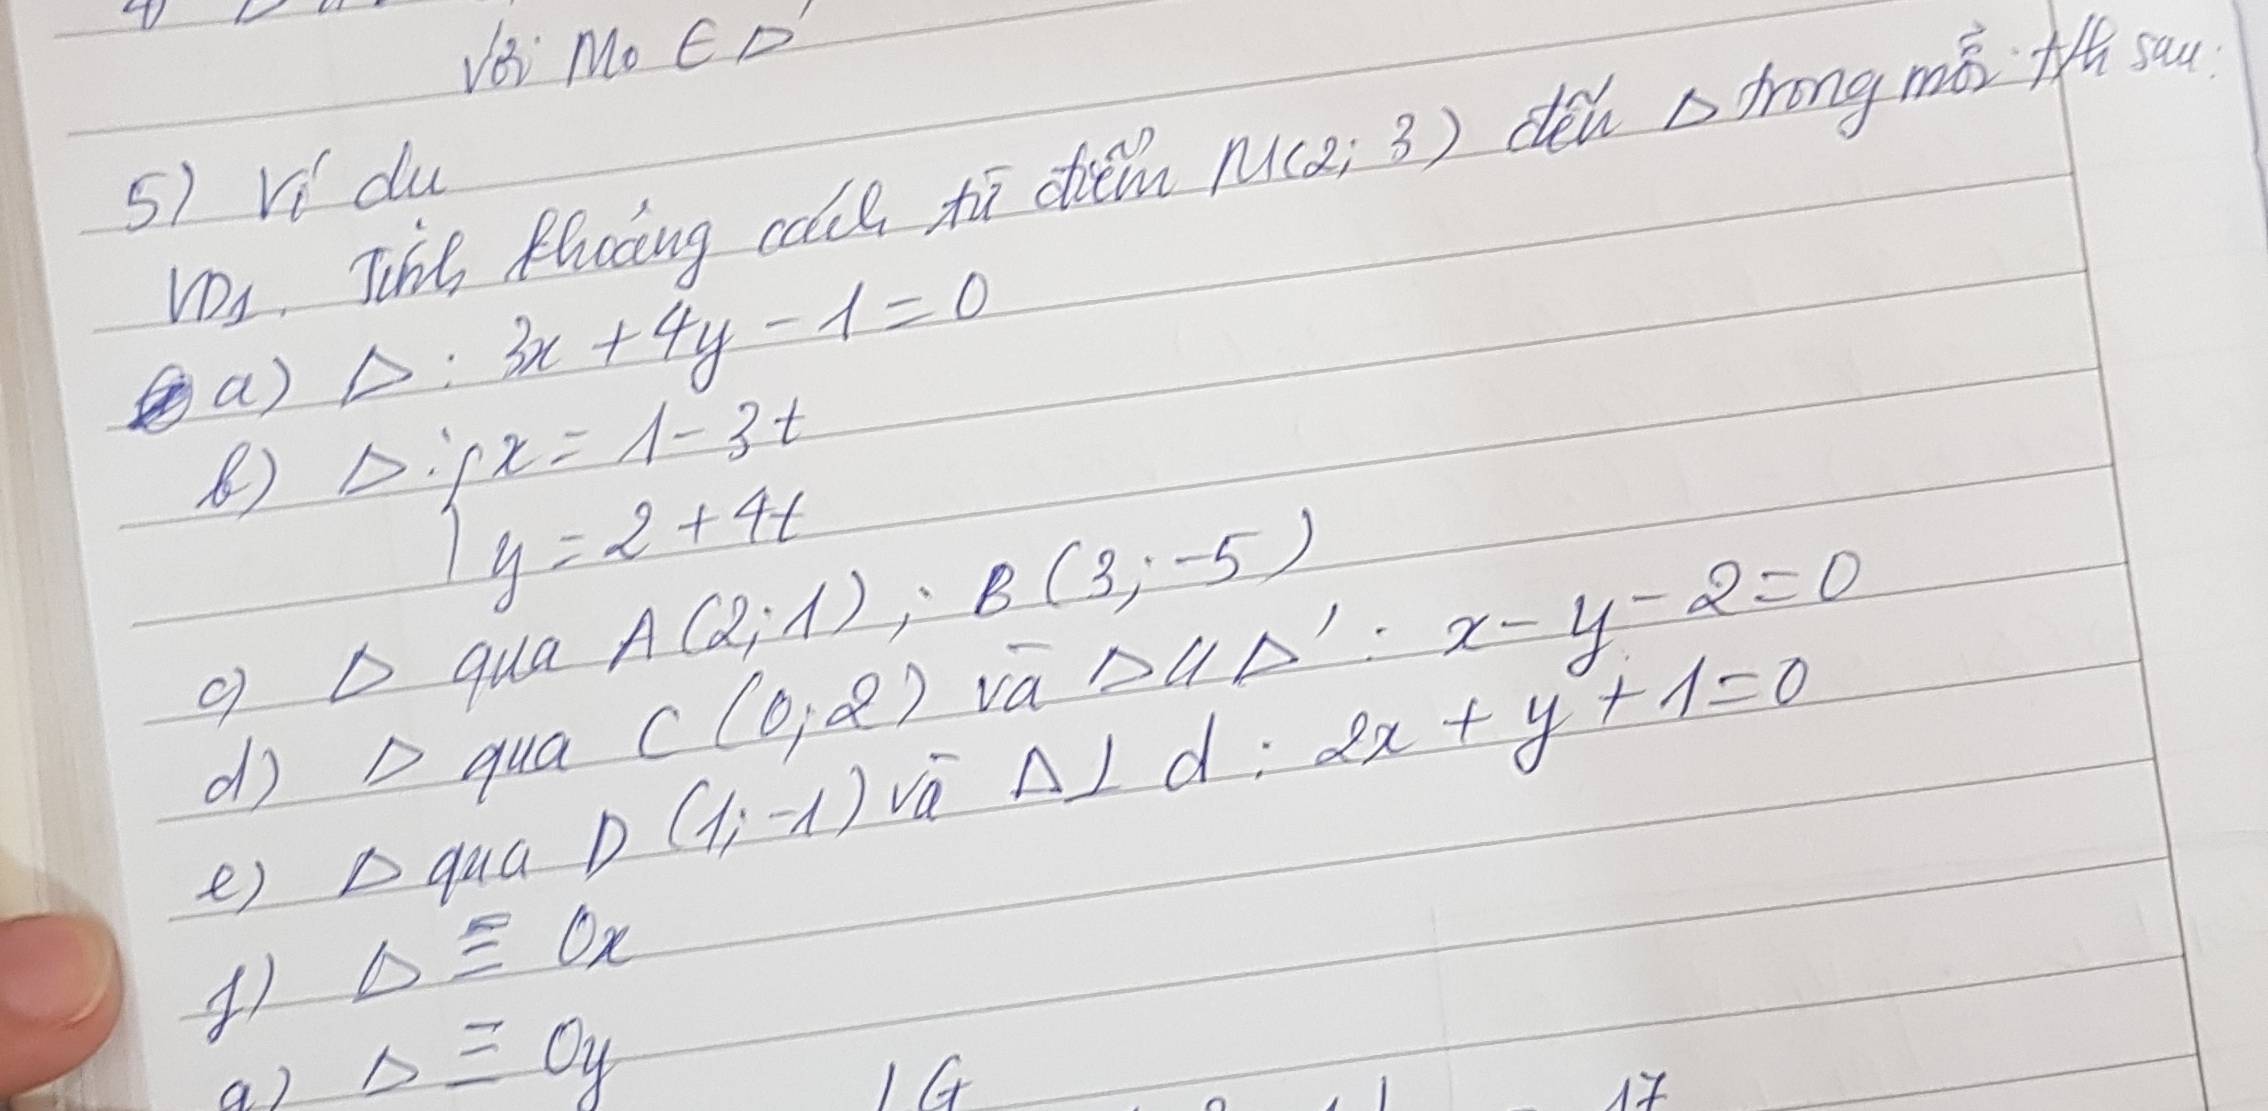 4) Δ
với M₀ ∈ Δ'
5) Ví du
VD1. Tính khoảng cách từ điểm M(2; 3) đến Δ trong mỗi t/h sau:
a) Δ : 3x + 4y - 1 = 0
b) Δ : { x = 1 - 3t
y = 2 + 4t
c) Δ qua A(2; 1) ; B(3; -5)
d) Δ qua C(0; 2) và Δ // Δ' : x - y - 2 = 0
e) Δ qua D(1; -1) và Δ ⊥ d : 2x + y + 1 = 0
f) Δ ≡ Ox
g) Δ ≡ Oy
LG
= 17